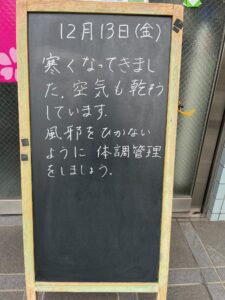 12月13日(金)
寒くなってきまし
た。空気も乾そう
しています。
風邪をひかない
ように 体調管理
をしましょう。